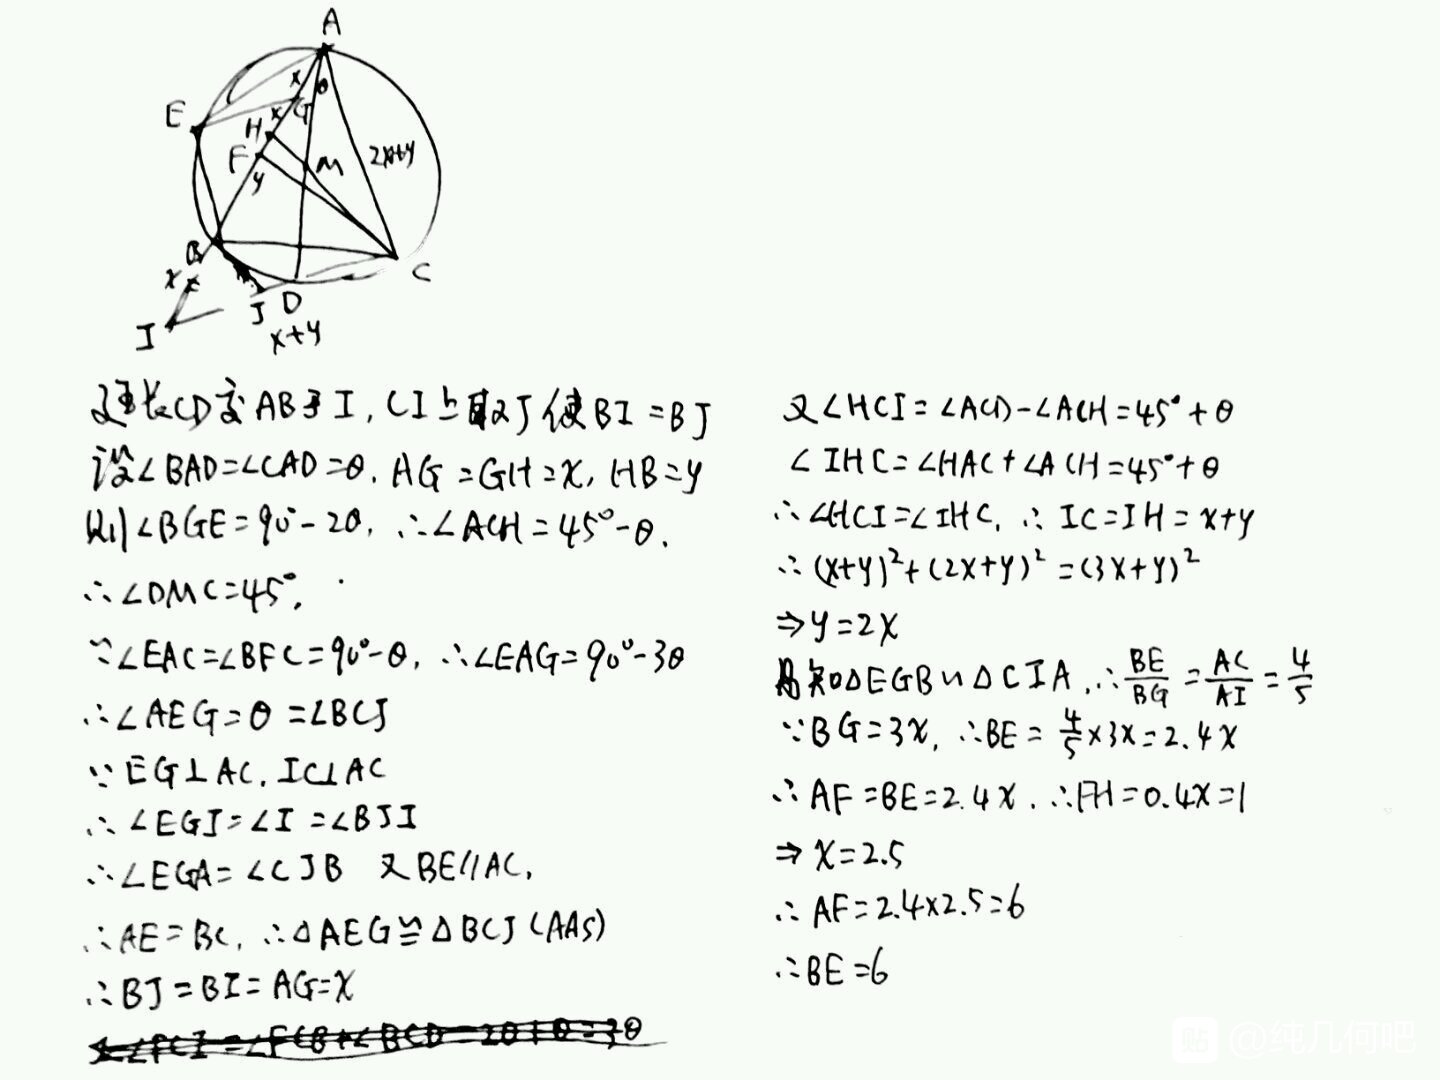 A
x
θ
E
x
G
H
F
M
2x+y
y
B
C
x
J
D
I
x+y
延长CD交AB于I,CI上取J使BI=BJ
设∠BAD=∠CAD=θ,AG=GH=x,HB=y
则∠BGE=90°-2θ,∴∠ACH=45°-θ.
∴∠DMC=45°.
∵∠EAC=∠BFC=90°-θ,∴∠EAG=90°-3θ
∴∠AEG=θ=∠BCJ
∵EG⊥AC,IC⊥AC
∴∠EGI=∠I=∠BJI
∴∠EGA=∠CJB 又BE//AC,
∴AE=BC,∴△AEG≌△BCJ(AAS)
∴BJ=BI=AG=x
又∠FCI=∠FCB+∠BCD=2θ+θ=3θ
又∠HCI=∠ACD-∠ACH=45°+θ
∠IHC=∠HAC+∠ACH=45°+θ
∴∠HCI=∠IHC,∴IC=IH=x+y
∴(x+y)²+(2x+y)²=(3x+y)²
⇒y=2x
易知△EGB∽△CIA,∴BE/BG=AC/AI=4/5
∵BG=3x,∴BE=4/5×3x=2.4x
∴AF=BE=2.4x.∴FH=0.4x=1
⇒x=2.5
∴AF=2.4×2.5=6
∴BE=6
贴 @纯几何吧